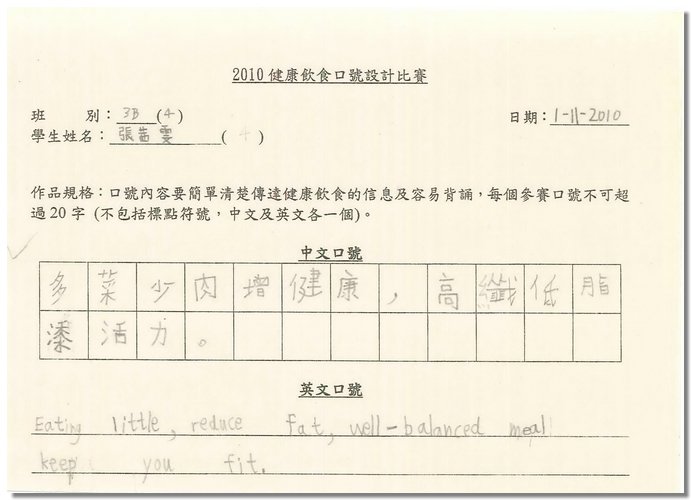 2010 健康飲食口號設計比賽
班 別：3B (4)
日期：1-11-2010
學生姓名：張茜雯 ( 4 )
作品規格：口號內容要簡單清楚傳達健康飲食的信息及容易背誦，每個參賽口號不可超
過20字 (不包括標點符號，中文及英文各一個)。
中文口號
多菜少肉增健康，高纖低脂
添活力。
英文口號
Eating little, reduce fat, well-balanced meal
keep you fit.